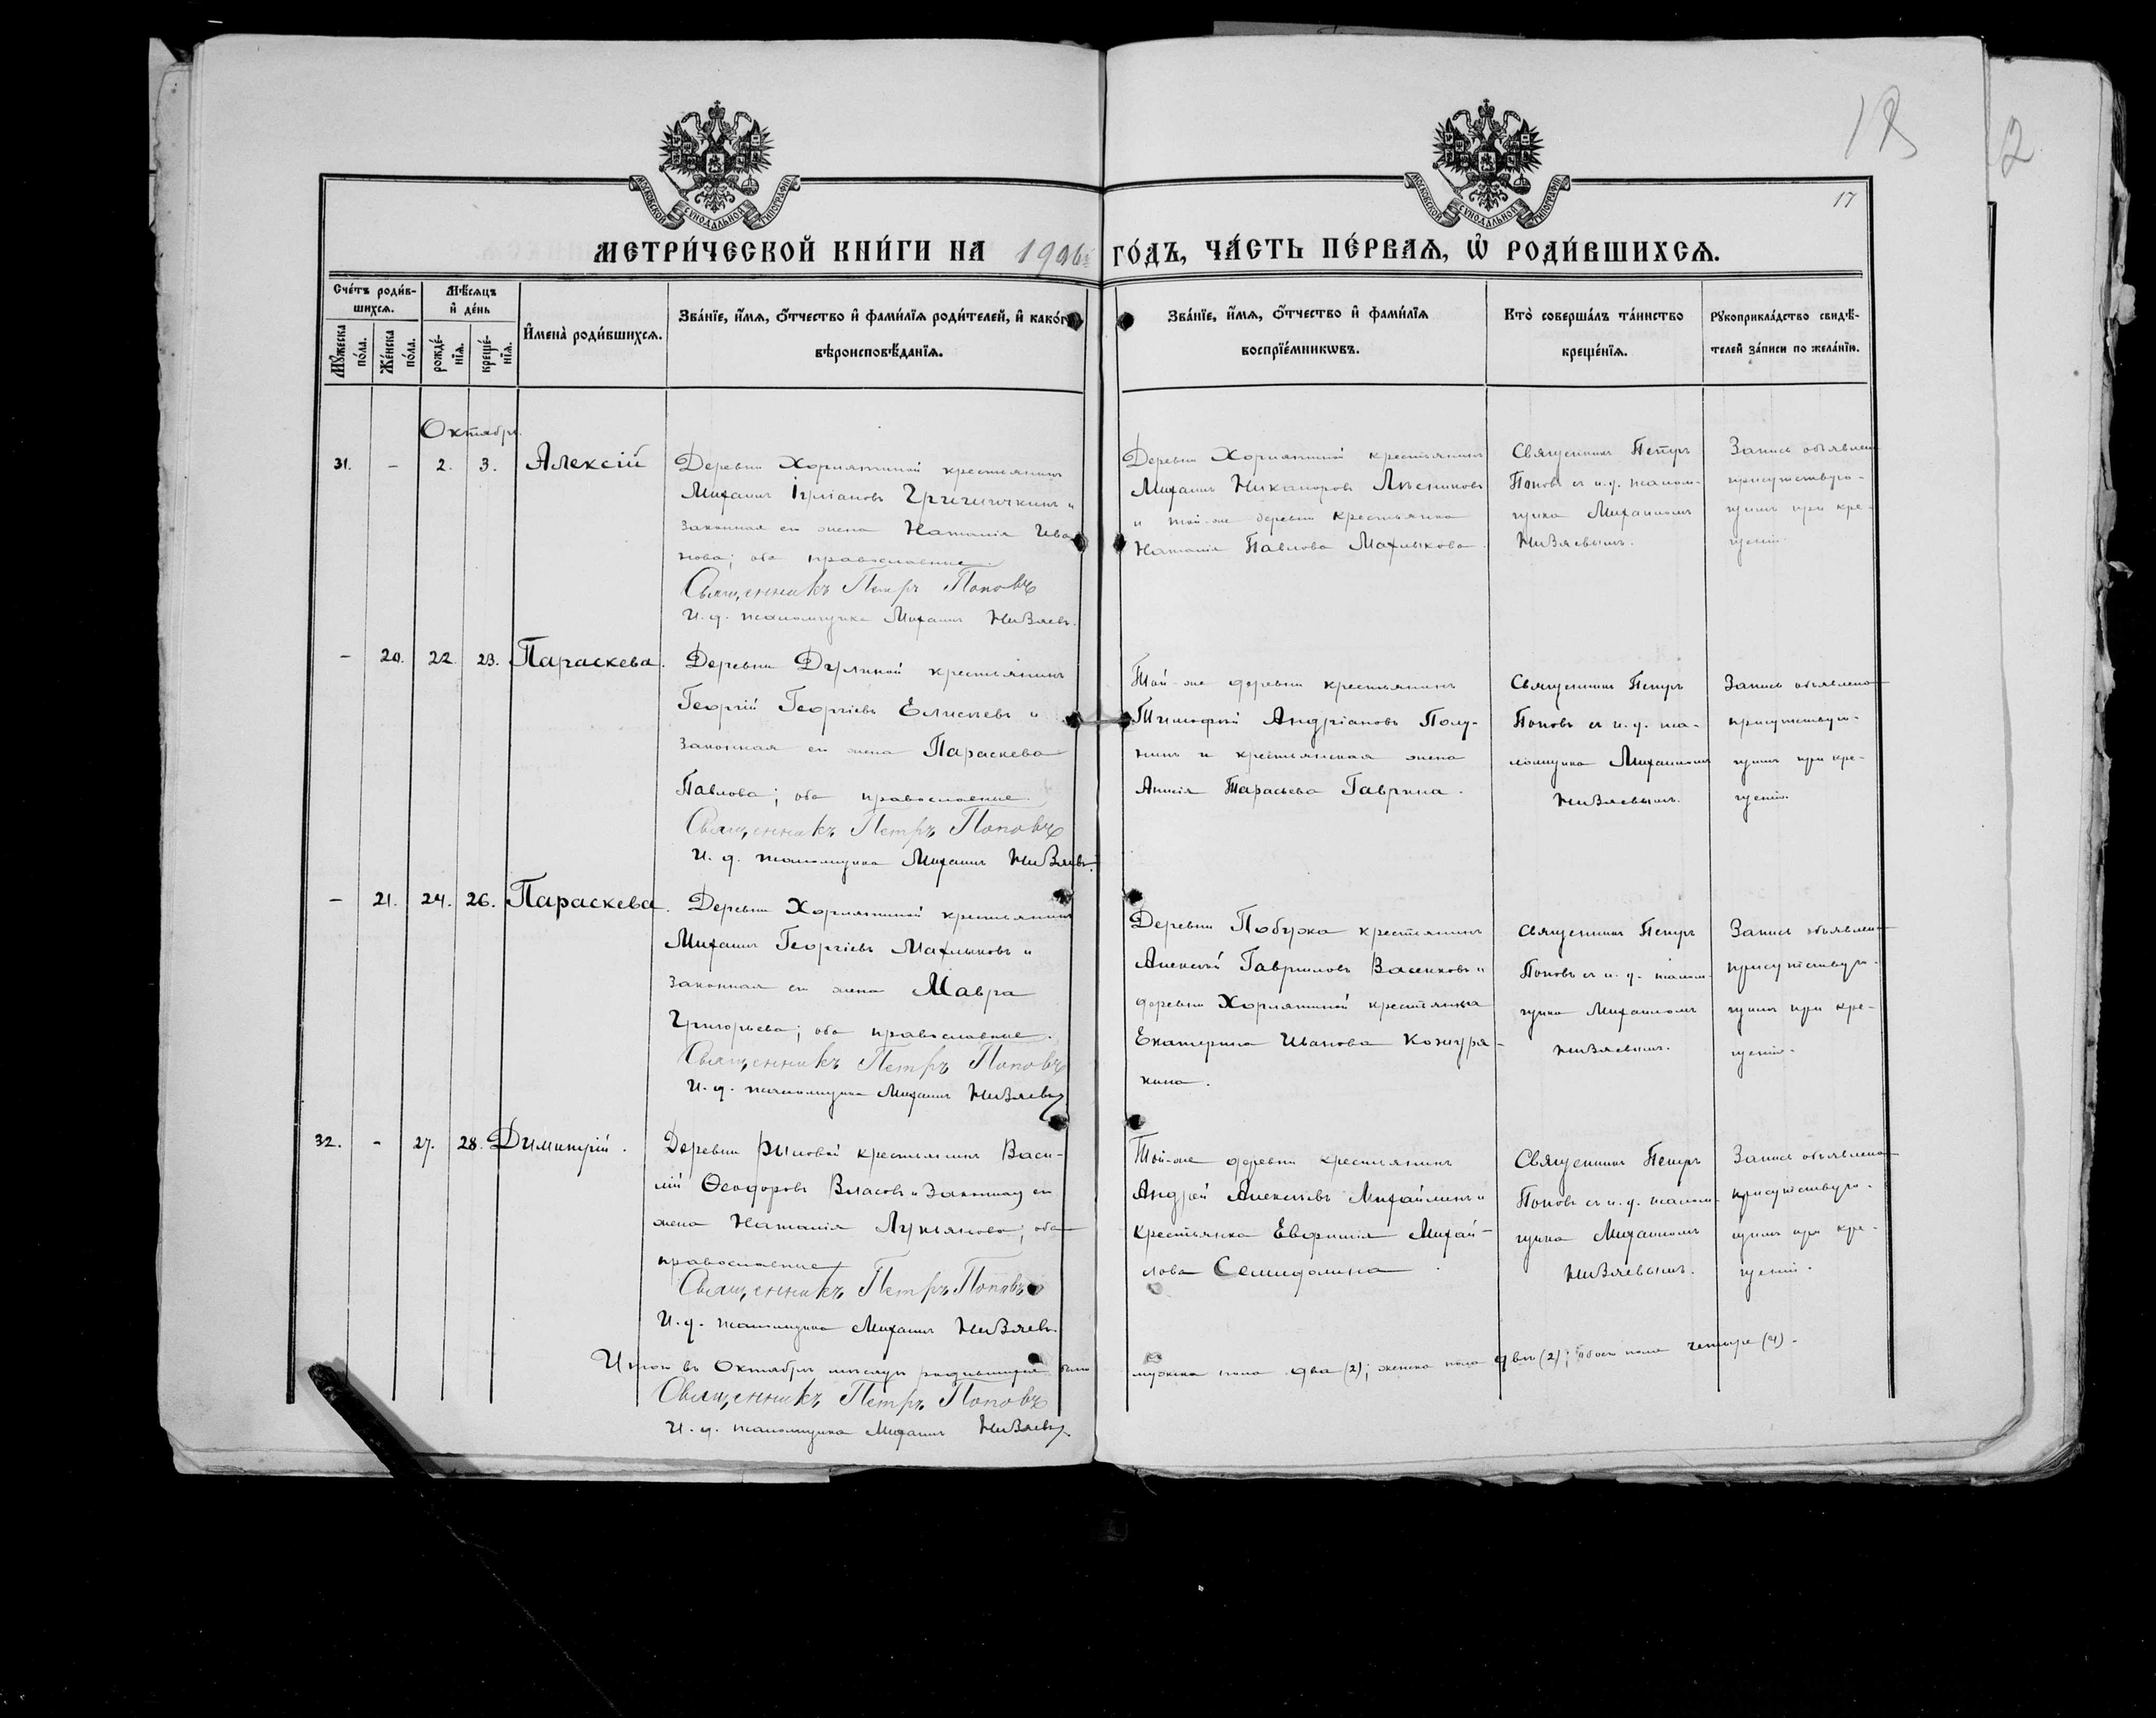 18
2
17
МОСКОВСКОЙ СѴНОДАЛЬНОЙ ТИПОГРАФІИ
МОСКОВСКОЙ СѴНОДАЛЬНОЙ ТИПОГРАФІИ
МЕТРИ́ЧЕСКОЙ КНИ́ГИ НА 1906 ГО́ДЪ, ЧА́СТЬ ПЕ́РВАѦ, Ѡ҆ РОДИ́ВШИХСѦ.
Сче́тъ роди́в-
шихсѧ.
Мꙋ́жеска по́ла.
Же́нска по́ла.
Мѣ́сѧцъ
и҆ де́нь
рожде́-
нїѧ.
креще́-
нїѧ.
И҆мена̀ роди́вшихсѧ.
Зва́нїе, и҆́мѧ, ѻ҆́тчество и҆ фами́лїѧ роди́телей, и҆ како́г
вѣроисповѣ́данїѧ.
Зва́нїе, и҆́мѧ, ѻ҆́тчество и҆ фами́лїѧ
воспрїе́мникѡвъ.
Кто̀ соверша́лъ та́инство
креще́нїѧ.
Рꙋкоприкла́дство свидѣ́-
телей за́писи по жела́нїю.
Октябрь.
31. - 2. 3. Алексій
Деревни крестьянинъ
Михаилъ и
законная его жена Наталія Ива
нова; оба православные.
Священникъ Петръ Поповъ
И. д. псаломщика Михаилъ
Деревни крестьянинъ
Михаилъ Никаноровъ Лѣсниковъ
и той-же деревни крестьянка
Наталія Павлова Махлыкова.
Священникъ Петръ
Поповъ съ и. д. псалом-
щика Михаиломъ
Запись объявлена
присутствую-
щимъ при кре-
щеніи.
- 20. 22. 23. Параскева.
Деревни крестьянинъ
Георгій Георгіевъ Елисѣевъ и
законная его жена Параскева
Павлова; оба православные.
Священникъ Петръ Поповъ
И. д. псаломщика Михаилъ
Той-же деревни крестьянинъ
Тимофей Андріановъ Полу-
нинъ и крестьянская жена
Анисія Тарасьева Гаврина.
Священникъ Петръ
Поповъ съ и. д. пса-
ломщика Михаиломъ
Запись объявлена
присутствую-
щимъ при кре-
щеніи.
- 21. 24. 26. Параскева.
Деревни крестьянинъ
Михаилъ Георгіевъ Махлыковъ и
законная его жена Мавра
Григорьева; оба православные.
Священникъ Петръ Поповъ
И. д. псаломщика Михаилъ
Деревни Побужа крестьянинъ
Алексѣй Гавриловъ Васенковъ и
деревни крестьянка
Екатерина Иванова Кожуря-
кина.
Священникъ Петръ
Поповъ съ и. д. псалом-
щика Михаиломъ
Запись объявлена
присутствую-
щимъ при кре-
щеніи.
32. - 27. 28. Димитрій.
Деревни крестьянинъ Васи-
лій Ѳеодоровъ Власовъ и законная его
жена Наталія Лукьянова; оба
православные
Священникъ Петръ Поповъ
И. д. псаломщика Михаилъ
Той-же деревни крестьянинъ
Андрей Алексѣевъ Михайлинъ и
крестьянка Евфимія Михай-
лова Семидолина.
Священникъ Петръ
Поповъ съ и. д. псалом-
щика Михаиломъ
Запись объявлена
присутствую-
щимъ при кре-
щеніи.
Итого въ Октябрѣ мѣсяцѣ родившихся было мужска пола два (2); женска пола двѣ (2); обоего пола четыре (4).
Священникъ Петръ Поповъ
И. д. псаломщика Михаилъ